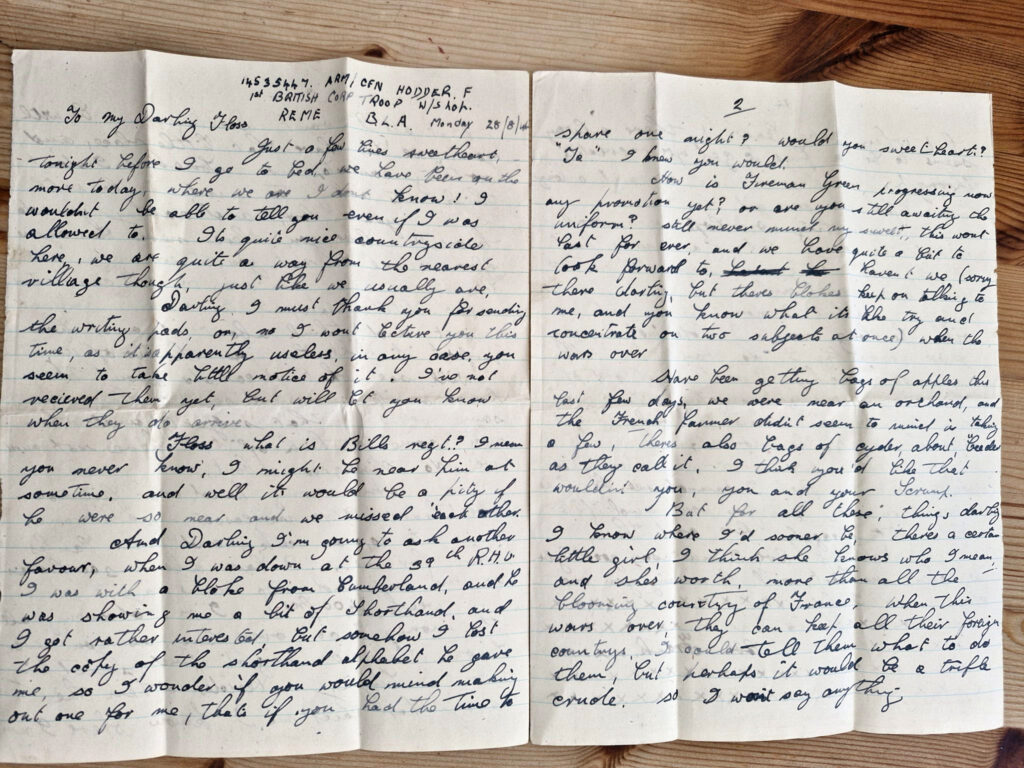 14535447. ARM/CFN HODDER. F
1st BRITISH CORP TROOP W/Shop.
REME B.L.A. Monday 28/8/4
To my Darling Floss
Just a few lines sweetheart,
tonight before I go to bed, we have been on the
more today, where we are I dont know! I
wouldnt be able to tell you even if I was
allowed to. Its quite nice countryside
here, we are quite a way from the nearest
village though, just like we usually are,
Darling I must thank you for sending
the writing pads on, no I wont be you this
time, as it apparently useless, in any case, you
seem to take little notice of it. I've not
recieved them yet, but will let you know
when they do arrive.
Floss what is Bills regt? I mean
you never know, I might be near him at
sometime, and well it would be a pity if
he were so near and we missed each other.
And Darling I'm going to ask another
favour, when I was down at the 39th R.H.U
I was with a bloke from Cumberland, and he
was showing me a bit of shorthand, and
I got rather interested, but somehow I lost
the copy of the shorthand alphabet he gave
me, so I wonder if you would mind making
out one for me, thats if you had the time to
2
spare one night? would you sweetheart?
"Ta" I knew you would.
How is Fireman Green progressing now
any promotion yet? or are you still awaiting the
uniform? still never mind my sweet, this wont
last for ever, and we have quite a bit to
look forward to, havent we (sorry
there darling, but theres blokes keep on talking to
me, and you know what its like try and
concentrate on two subjects at once) when the
wars over
Have been getting bags of apples this
last few days, we were near an orchard, and
the French farmer didnt seem to mind us taking
a few, theres also bags of cyder, about,
as they call it. I think you'd like that
wouldnt you, you and your Scrump.
But for all these, things darling
I know where I'd sooner be, theres a certain
little girl, I think she knows who I mean
and shes worth, more than all the
blooming country of France. When this
wars over, they can keep all their foreign
countrys, I could tell them what to do
them, but perhaps it would be a trifle
crude. so I wont say anything